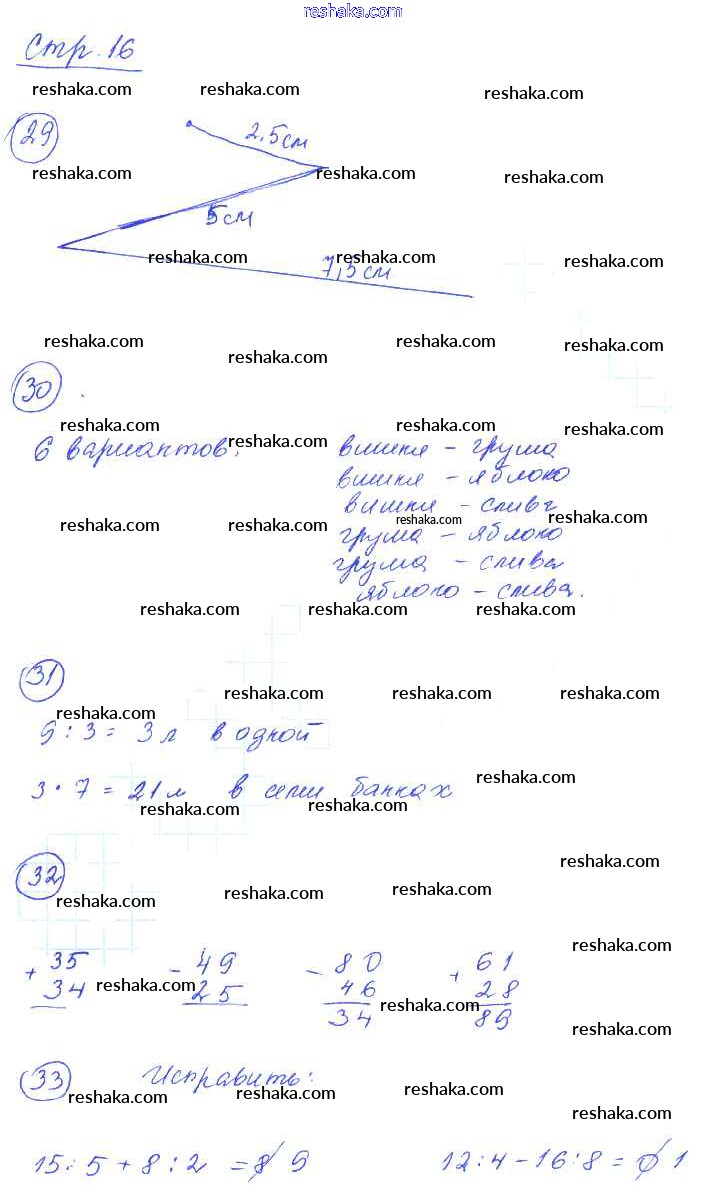 reshaka.com
Стр. 16
reshaka.com reshaka.com reshaka.com
29
2,5см
reshaka.com reshaka.com reshaka.com
5см
reshaka.com reshaka.com reshaka.com
7,5см
reshaka.com reshaka.com reshaka.com reshaka.com
30
reshaka.com reshaka.com reshaka.com
6 вариантов: reshaka.com вишня - груша
вишня - яблоко
вишня - слива
reshaka.com reshaka.com reshaka.com reshaka.com
груша - яблоко
груша - слива
яблоко - слива.
reshaka.com reshaka.com reshaka.com
31
reshaka.com reshaka.com reshaka.com
reshaka.com
9 : 3 = 3л в одной
reshaka.com
3 · 7 = 21л в семи банках
reshaka.com reshaka.com
32
reshaka.com
reshaka.com reshaka.com reshaka.com
reshaka.com
+ 35 - 49 - 80 + 61
34 reshaka.com 25 46 28
34 reshaka.com 89
reshaka.com
33 Исправить:
reshaka.com reshaka.com reshaka.com
reshaka.com
15 : 5 + 8 : 2 = 8 9 12 : 4 - 16 : 8 = 0 1